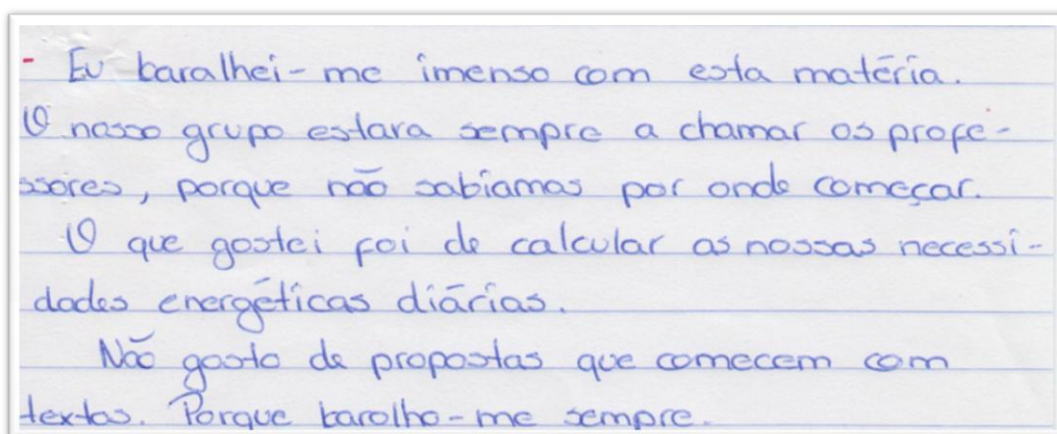 - Eu baralhei-me imenso com esta matéria.
O nosso grupo estara sempre a chamar os profe-
ssores, porque não sabiamos por onde começar.
O que gostei foi de calcular as nossas necessi-
dades energéticas diárias.
Não gosto de propostas que comecem com
textos. Porque baralho-me sempre.